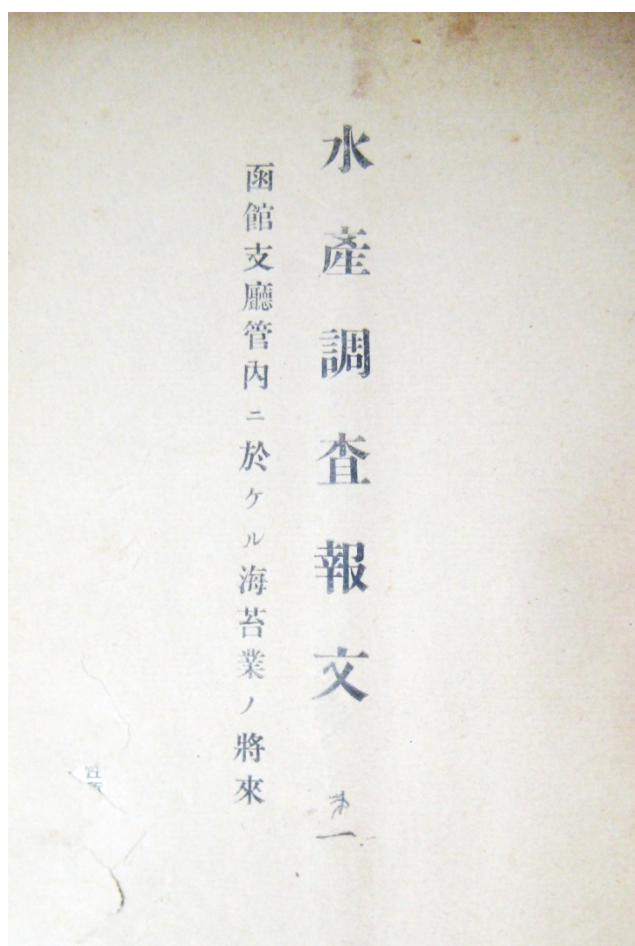 水產調查報文 第一
函館支廳管內ニ於ケル海苔業ノ將來